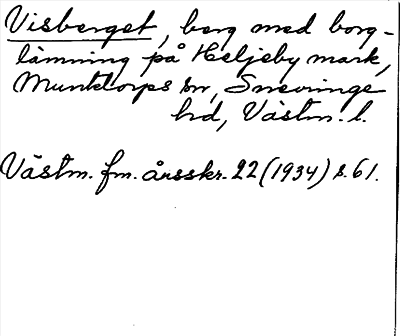 Visberget, berg med borg-
lämning på Heljeby mark,
Munktorps sn, Snevringe
hd, Västm. l.
Västm. fm. årsskr. 22 (1934) s. 61.